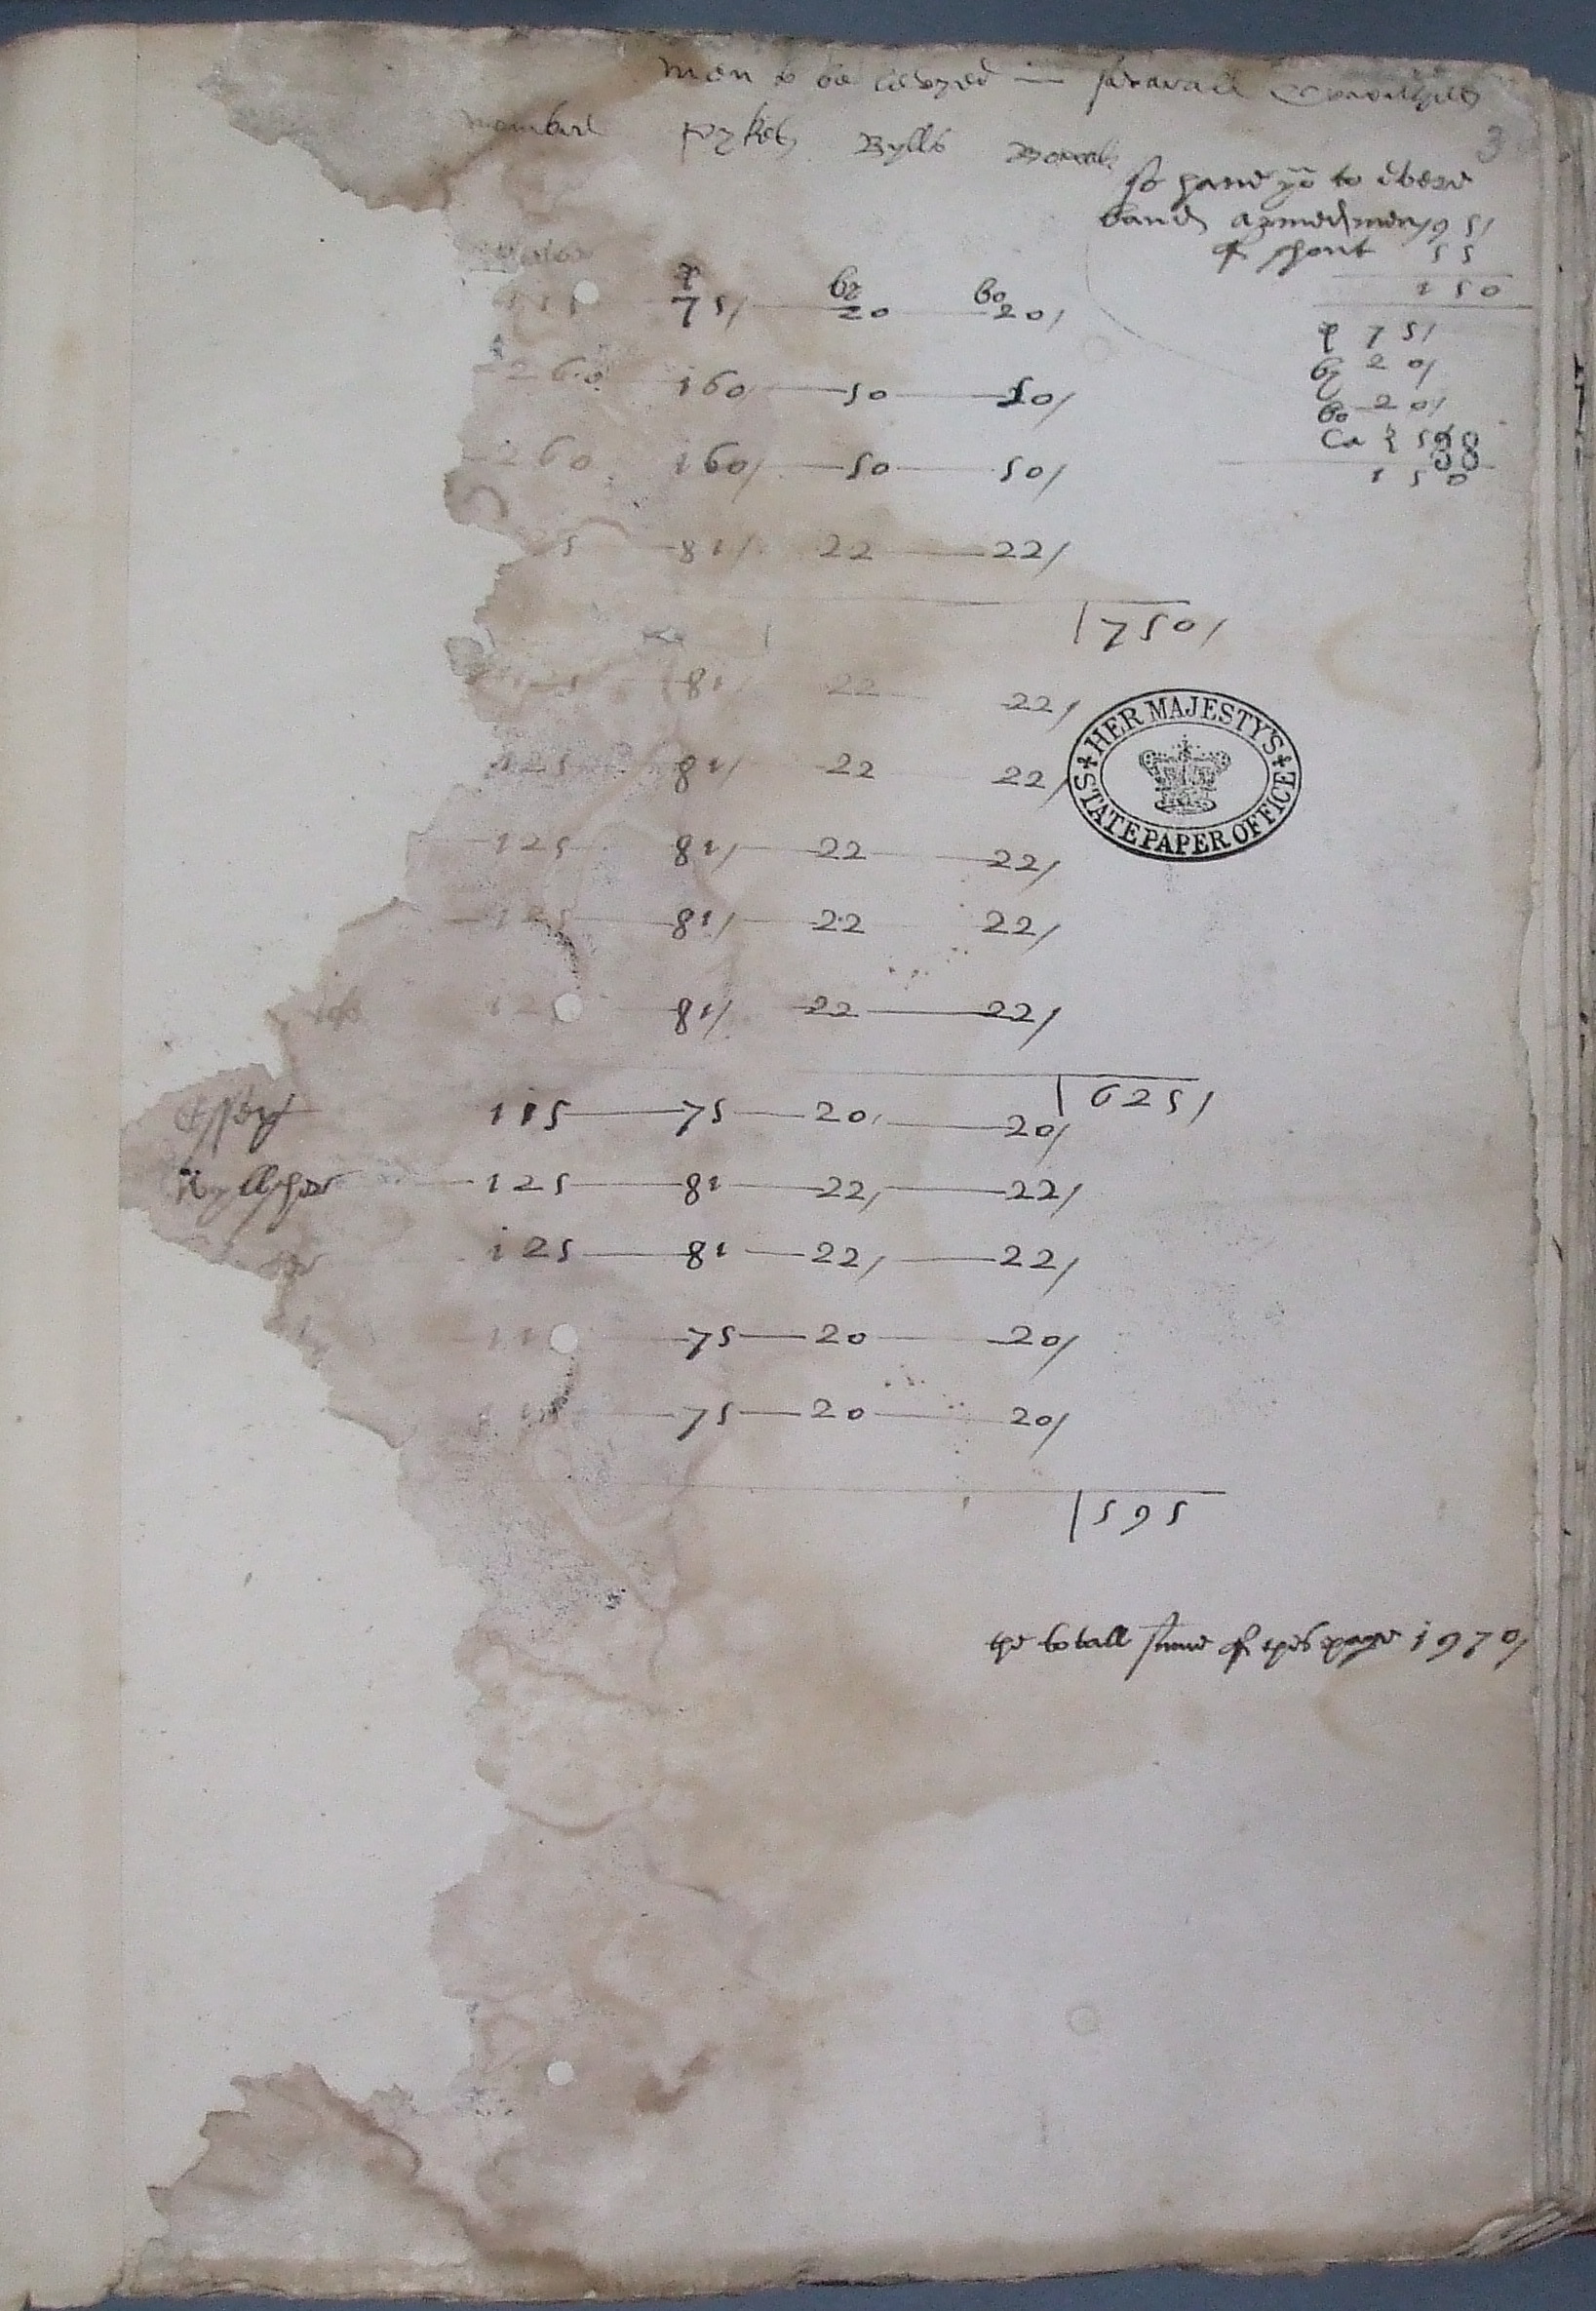 men to be levyed in severall Countyes
nomber Pykes Bylls Bowes
3
so have yo to every
band armed men 95/
& shott 55
150
p by bo
75/ 20 20/
p 75/
by 20/
bo 20/
Ca
38
150
260 160 50 50/
260 160/ 50 50/
25 81/ 22 22/
750/
125 81/ 22 22/
125 81/ 22 22/
125 81/ 22 22/
125 81/ 22 22/
12 81/ 22 22/
625/
HER MAJESTY'S STATE PAPER OFFICE
Essex 115 75 20 20/
125 81 22/ 22/
125 81 22/ 22/
11 75 20 20/
75 20 20/
595
the totall sume of this page 1970/